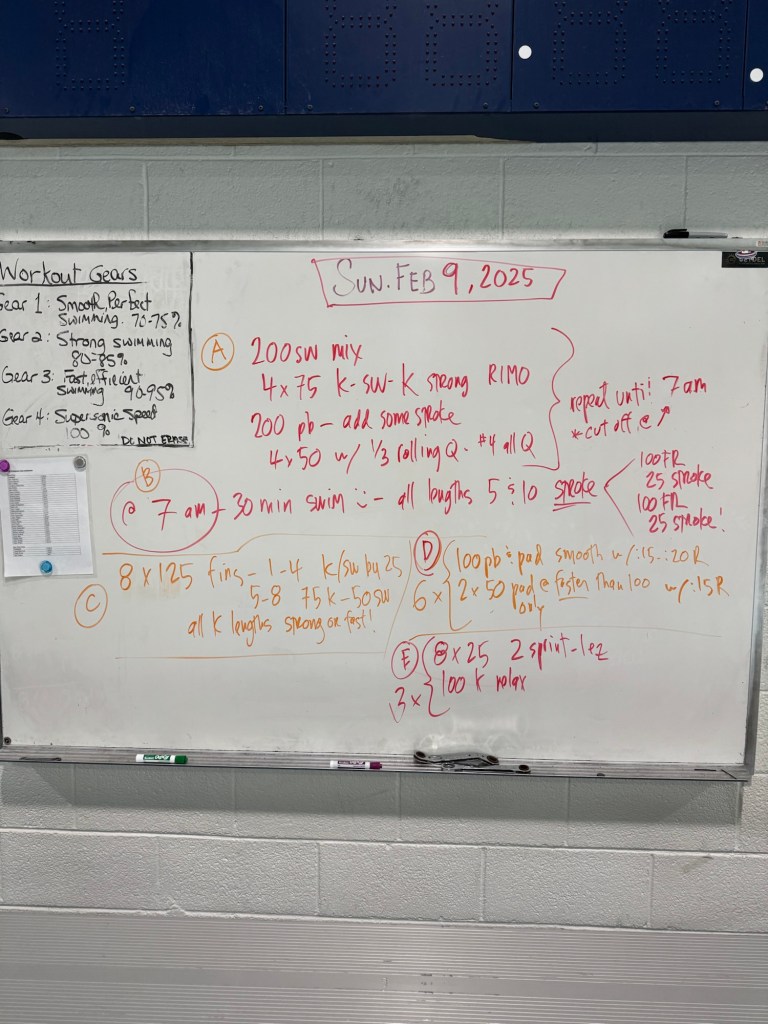 Workout Gears
Gear 1: Smooth, Perfect
SWIMMING. 70-75%
Gear 2: Strong swimming
80-85%
Gear 3: Fast, efficient
Swimming 90-95%
Gear 4: Supersonic Speed
100 %
DO NOT ERASE
SUN. FEB 9, 2025
A
200 sw mix
4 x 75 k-sw-k strong RIMO
200 pb - add some stroke
4 x 50 w/ 1/3 rolling Q - #4 all Q
repeat until 7 am
* cut off @ ↗
B
@ 7 am - 30 min swim :) - all lengths 5 & 10 stroke
100 FR
25 stroke
100 FR
25 stroke!
C
8 x 125 fins - 1-4 k/sw by 25
5-8 75k - 50sw
all k lengths strong or fast!
D
6 x
100 pb & pad smooth w/ :15-:20 R
2 x 50 pad @ faster than 100 w/ :15 R
only
E
3 x
8 x 25 2 sprint - 1 ez
100 k relax